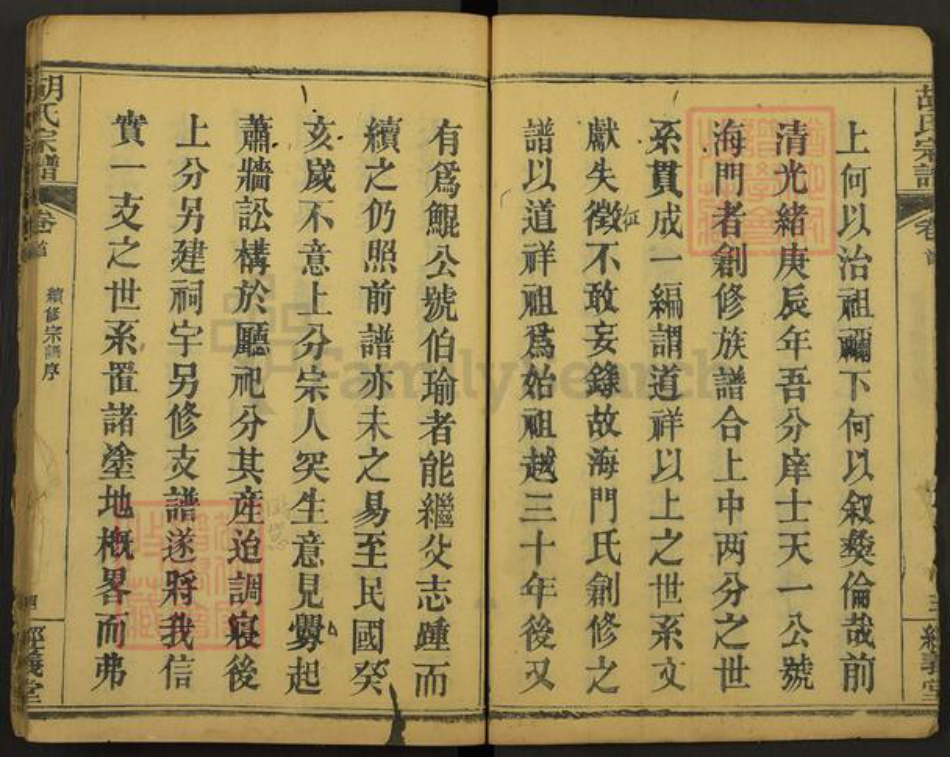 胡氏宗譜
卷首
經義堂
上何以治祖禰下何以叙彜倫哉前
清光緒庚辰年吾分庠士天一公號
海門者創修族譜合上中两分之世
系貫成一編謂道祥以上之世系文
獻失徵不敢妄錄故海門氏創修之
征
譜以道祥祖爲始祖越三十年後又
有爲鯤公號伯瑜者能繼父志踵而
續之仍照前譜亦未之易至民國癸
亥歲不意上分宗人突生意見釁起
蕭牆訟構於廳祀分其産迨調寢後
上分另建祠宇另修支譜遂將我信
實一支之世系置諸塗地概畧而弗
胡氏宗譜
卷首
續修宗譜序
四
經義堂
FamilySearch